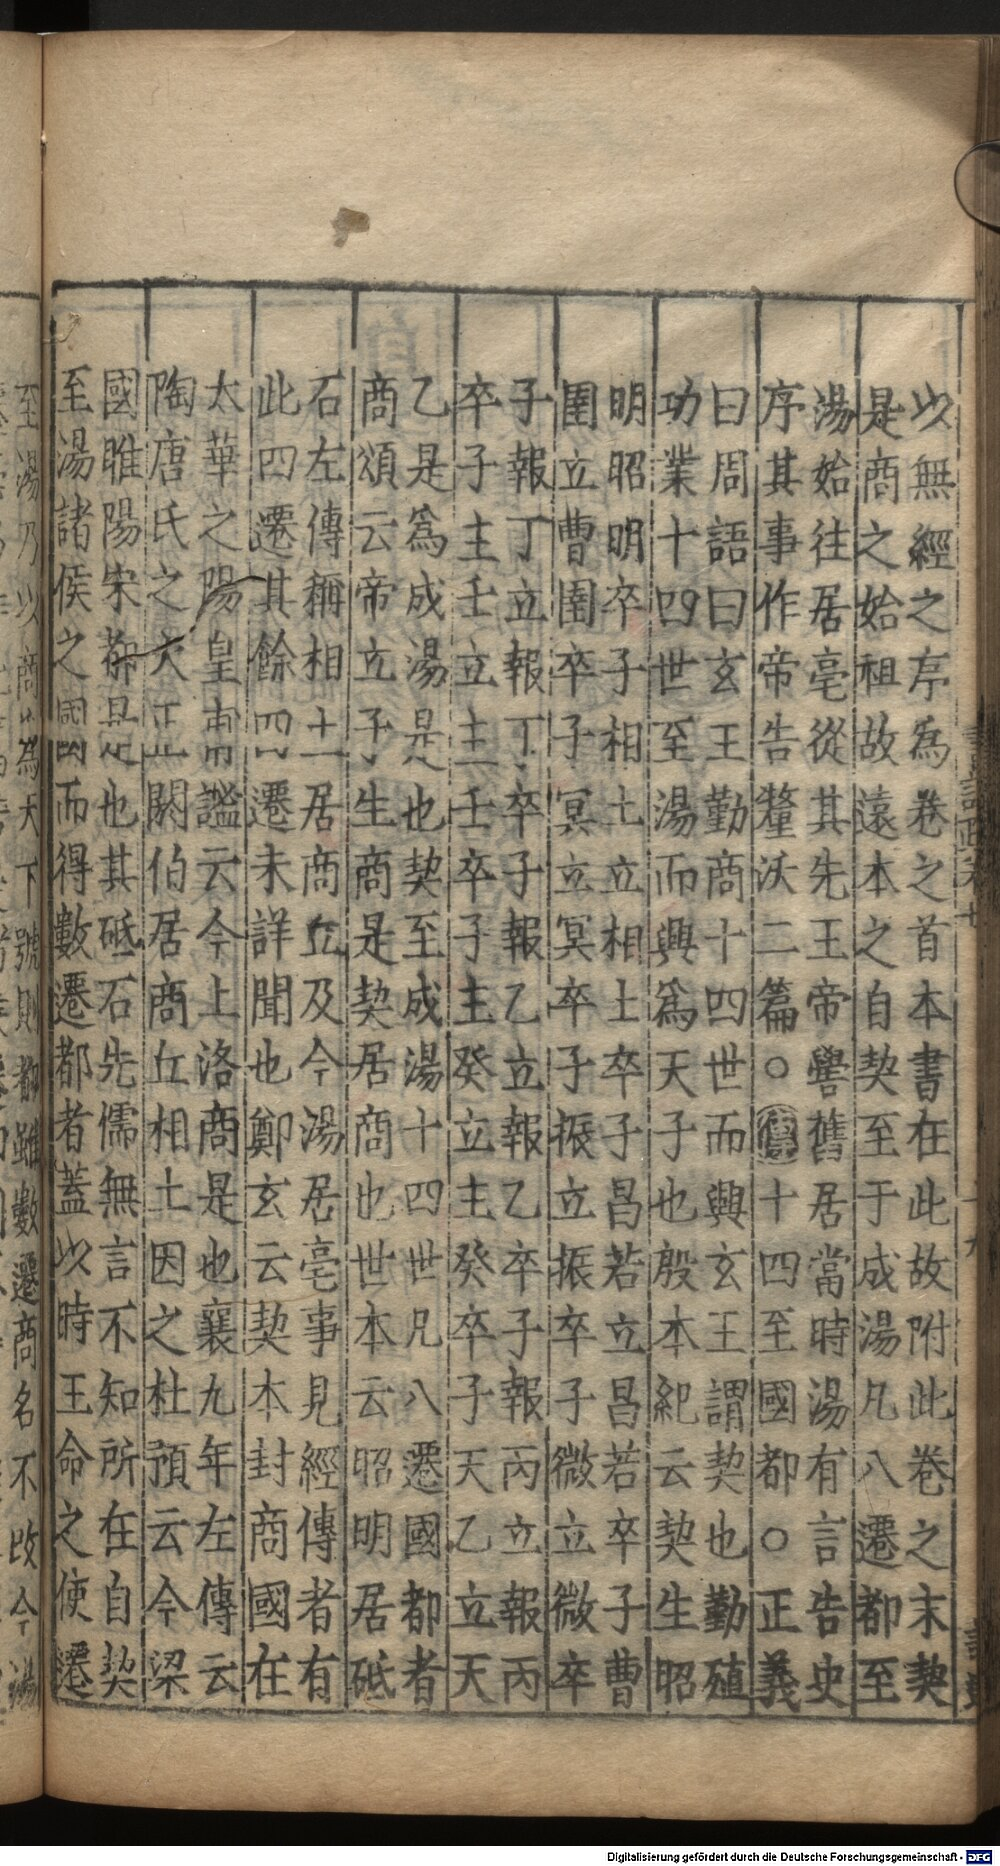 以無經之序為卷之首本書在此故附此卷之末契
是商之始祖故遠本之自契至于成湯凡八遷都至
湯始往居亳從其先王帝嚳舊居當時湯有言告史
序其事作帝告釐沃二篇○十四至國都○正義
曰周語曰玄王勤商十四世而興玄王謂契也勤殖
功業十四世至湯而興為天子也殷本紀云契生昭
明昭明卒子相土立相土卒子昌若立昌若卒子曹
圉立曹圉卒子冥立冥卒子振立振卒子微立微卒
子報丁立報丁卒子報乙立報乙卒子報丙立報丙
卒子主壬立主壬卒子主癸立主癸卒子天乙立天
乙是為成湯是也契至成湯十四世凡八遷國都者
商頌云帝立子生商是契居商也世本云昭明居砥
石左傳稱相土居商丘及今湯居亳事見經傳者有
此四遷其餘四遷未詳聞也鄭玄云契本封商國在
太華之陽皇甫謐云今上洛商是也襄九年左傳云
陶唐氏之火正閼伯居商丘相土因之杜預云今梁
國睢陽宋都是也其砥石先儒無言不知所在自契
至湯諸侯之國而得數遷都者蓋以時王命之使遷
至湯乃以商為天下號則都雖數遷商名不改今湯
Digitalisierung gefördert durch die Deutsche Forschungsgemeinschaft - DFG